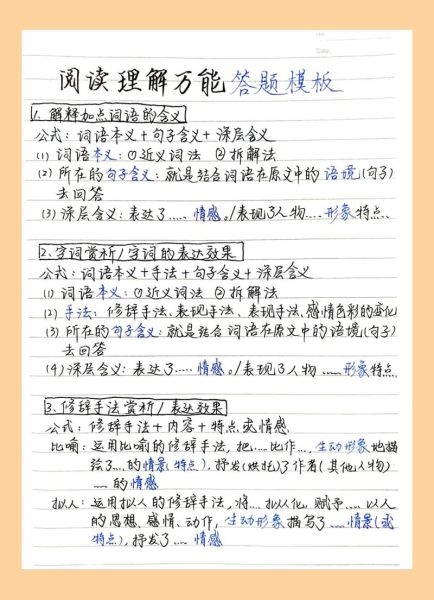 Date.
阅读理解万能答题模板
1. 解释加点词语的含义
公式：词语本义+句子含义+深层含义
(1) 词语本义：①近义词法 ②拆解法
(2) 所在的句子含义：就是结合词语在原文中的语境(句子)
去回答
(3) 深层含义：表达了……情感。/表现了人物……形象特点。
2.字词赏析/字词的表达效果
公式：词语本义+手法+句子含义+深层含义
(1) 词语本义：①近义词法 ②拆解法
(2) 手法：修辞手法、表现手法、表现手法、感情色彩的变化
(3) 所在的句子含义：就是结合词语在原文中的语境(句子)
去回答
(4) 深层含义：表达了……情感。/表现了人物……形象特点
3.修辞手法赏析/表达效果
公式：修辞手法+内容+特点或情感
比喻：运用比喻的修辞手法，把…比作…，生动形象地描
绘了…的情景(特点)，抒发(烘托)了作者(其他人物)
…的情感
拟人：运用拟人的修辞手法，将…拟人化，赋予……以人
的思想、感情、动作，生动形象描写了……情景(或
特点)，抒发了……情感